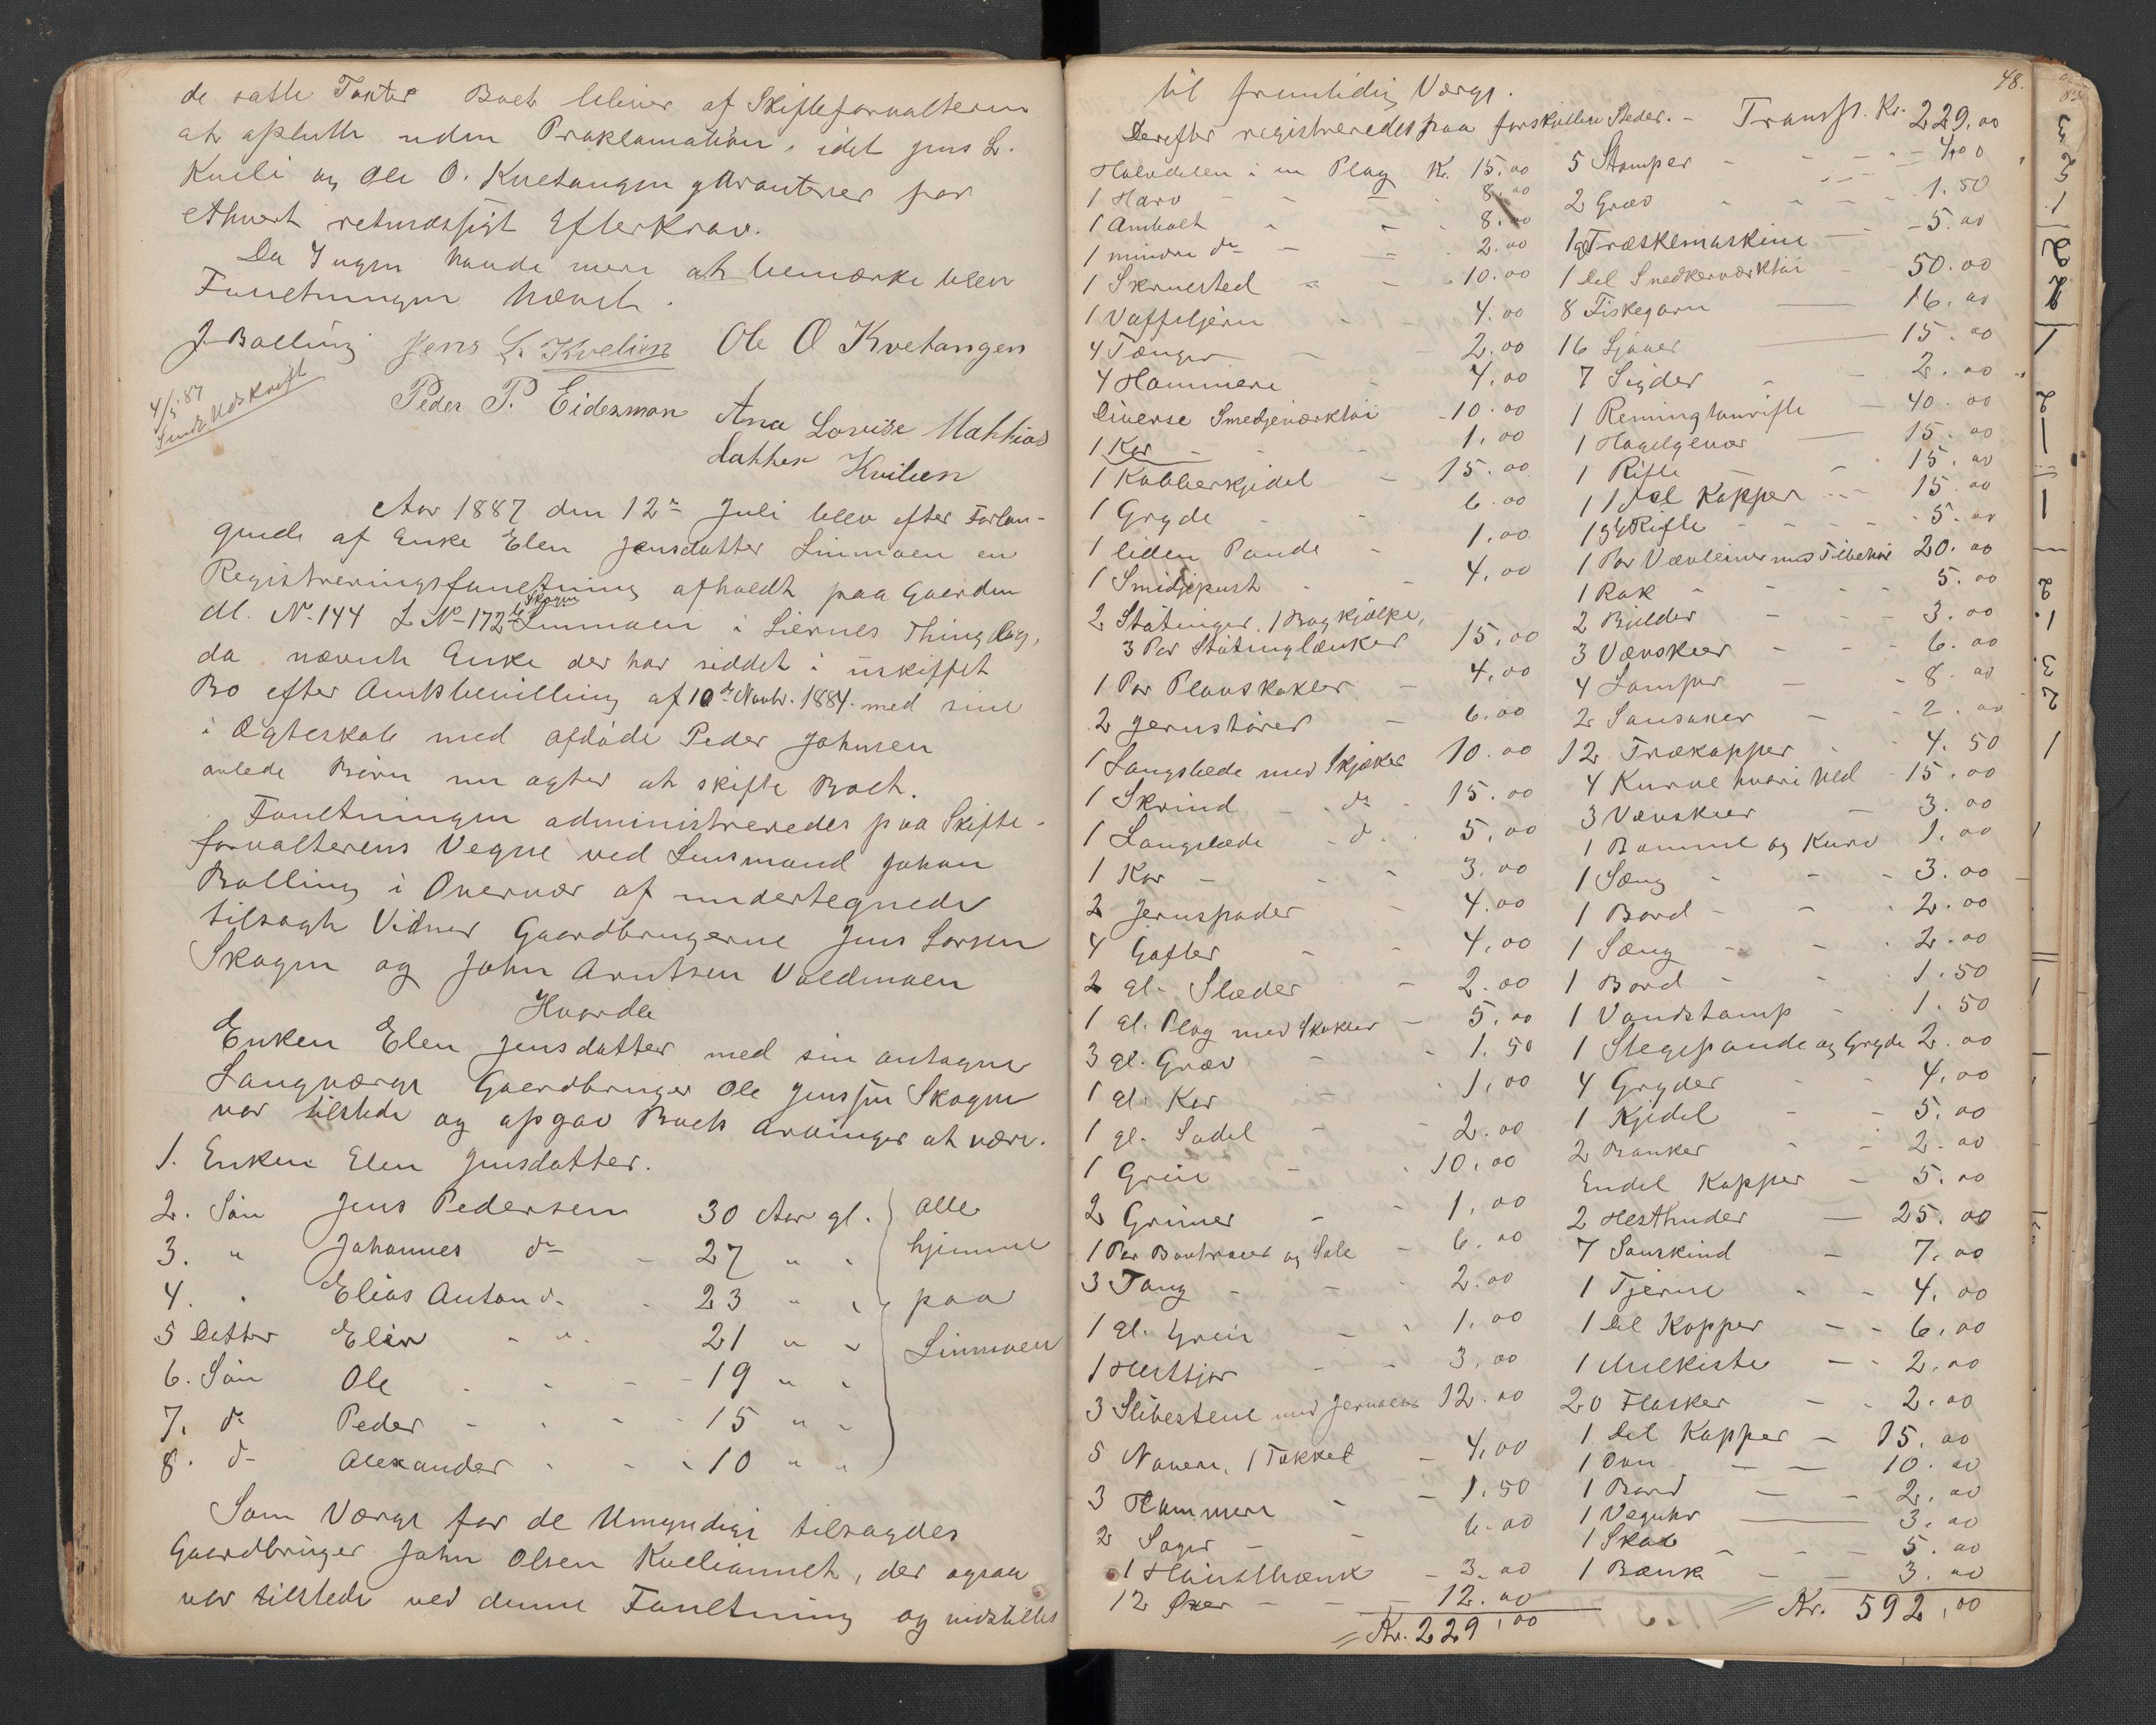 de satte Taxter Boet bliver af Skifteforvalteren
at afslutte uden Proklamation, idet Jens L.
Kveli og Ole O. Kvetangen garanterer for
ethvert retmæssigt Efterkrav.
Da Ingen havde mere at bemærke blev
Forretningen hævet.
J. Bolling Jens L. Kvelien Ole O Kvetangen
4/5 87
Sendt Udskrift
Peder P. Eidesmon Ana Lovise Mathias
datter Kvilien
Aar 1887 den 12te Juli blev efter Forlan-
gende af Enke Elen Jensdatter Linmoen en
Registreringsforretning afholdt paa Gaarden
M. No 144 L No 172 Skogen Linmoen i Liernes Thinglag,
da nævnte Enke der har siddet i uskiftet
Bo efter Amtsbevilling af 10de Novbr. 1884 med sine
i Ægteskab med afdøde Peder Johnsen
avlede Børn nu agter at skifte Boet.
Forretningen administreredes paa Skifte-
forvalterens Vegne ved Lensmand Johan
Bolling i Overvær af undertegnede
tilsagte Vidner Gaardbrugerne Jens Larsen
Skogen og John Arntsen Voldmoen
Hvorda
Enken Elen Jensdatter med sin antagne
Laugværge Gaardbruger Ole Jenssen Skogen
var tilstede og opgav Boets Arvinger at være.
1. Enken Elen Jensdatter.
2. Søn Jens Pedersen 30 Aar gl. alle
3. " Johannes do - 27 " " hjemme
4. " Elias Anton do - 23 " " paa
5 Datter Elen - " - 21 " " Linmoen
6. Søn Ole - - - 19 " "
7. do Peder - - - 15 " "
8. do Alexander - - - 10 " "
Som Værge for de Umyndige tilsagdes
Gaardbruger John Olsen Kveliannet, der ogsaa
var tilstede ved denne Forretning og indstilles
48.
til fremtidig Værge.
Derefter registreredes paa forskjellige Steder. -
Halvdelen i en Plog Kr. 15.00
1 Harv - - - 8.00
1 Ambolt - - - 8.00
1 mindre do - - 2.00
1 Skruested - - 10.00
1 Vaffeljern - 4.00
4 Tænger - - 2.00
4 Hammere - 4.00
Diverse Smedjeværktøi - 10.00
1 Kar - - - 1.00
1 Kobberkjedel - 15.00
1 Gryde - - 6.00
1 liden Pande - 1.00
1 Smidjepust - - 4.00
2 Støtinger, 1 Bogkjælke,
3 Par Støtinglænker 15.00
1 Par Plovskakler - 4.00
2 Jernstører - 6.00
1 Langslede med Skjæker 10.00
1 Skrind - do - 15.00
1 Langslæde - d. - 5.00
1 Kar - - - 3.00
2 Jernspader - 4.00
4 Gafler - - 4.00
2 gl. Slæder - 2.00
1 gl. Plog med Skakler - 5.00
3 gl. Græv - - 1.50
1 gl. Kar - - 1.00
1 gl. Sadel - - 2.00
1 Greie - - 10.00
2 Grimer - - 1.00
1 Par og Sele - 6.00
3 Tang - - - 2.00
1 gl. Greie - - 1.00
1 - - 3.00
3 Slibestene med 12.00
5 Navere, 1 - 4.00
3 Hammere - - 1.50
2 Sager - - 6.00
1 - 3.00
12 Øxer - - - 12.00
= Kr. 229,00
Transp. Kr. 229.00
5 Stamper - - - - 4.00
2 Græv - - - - 1.50
1 gl Træskemaskine - 5.00
1 Del Snedkerværktøi - 50.00
8 Fiskegarn - 16.00
16 Ljaaer - 15.00
7 Sigder - - 2.00
1 Remingtonrifle - 40.00
1 Haglgevær - 15.00
1 Rifle - - 15.00
1 Del Kopper - - 15.00
1 gl Rifle - - - 5.00
1 Par med Tilbehør 20.00
1 Rok - - - 5.00
2 Bjelder - - - 3.00
3 Vævskeer - - - 6.00
4 Lamper - - 8.00
2 Sausaxer - - 2.00
12 Trækopper - 4.50
4 Kurve hvori Uld - 15.00
3 Vævskeer - 3.00
1 Bomme og Kurv 1.00
1 Sæng - - - 3.00
1 Bord - - - 2.00
1 Sæng - - - 2.00
1 Bord - - - 1.50
1 Vandstamp - - 1.50
1 Stegepande og Gryde 2.00
4 Gryder - - 4.00
1 Kjedel - - 5.00
2 Banker - - 2.00
Endel Kopper - 5.00
2 Hesthuder - 25.00
7 Saueskind - 7.00
1 Tjerne - - 4.00
1 Del Kopper - - 6.00
1 Melkiste - - 2.00
20 Flasker - - 2.00
1 Del Kopper - 15.00
1 Ovn - - 10.00
1 Bord - - 2.00
1 Veguhr - 3.00
1 Skab - - - 5.00
1 Bænk - - 3.00
= Kr. 592,00